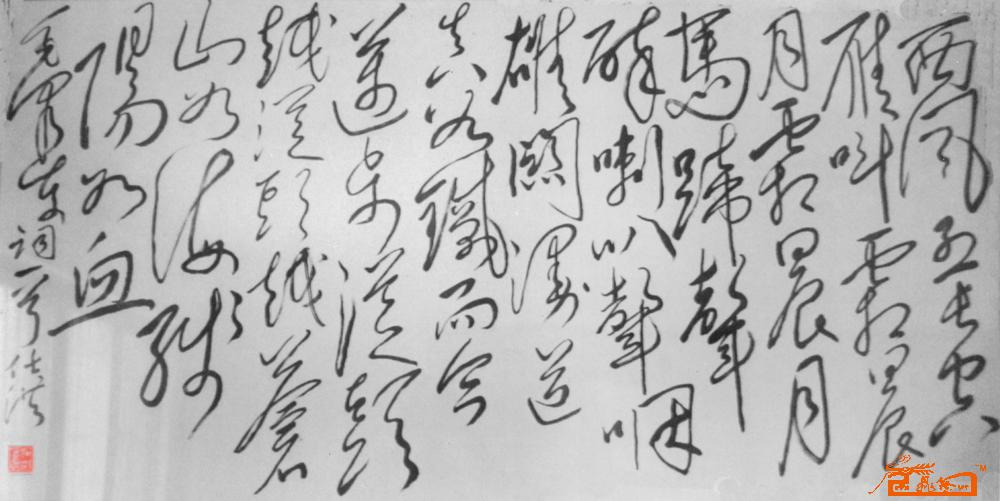 西风烈长空
雁叫霜晨
月霜晨月
马蹄声
碎喇叭声咽
雄关漫道
真如铁而今
迈步从头
越从头越苍
山如海残
阳如血
毛主席词一首 仕洪